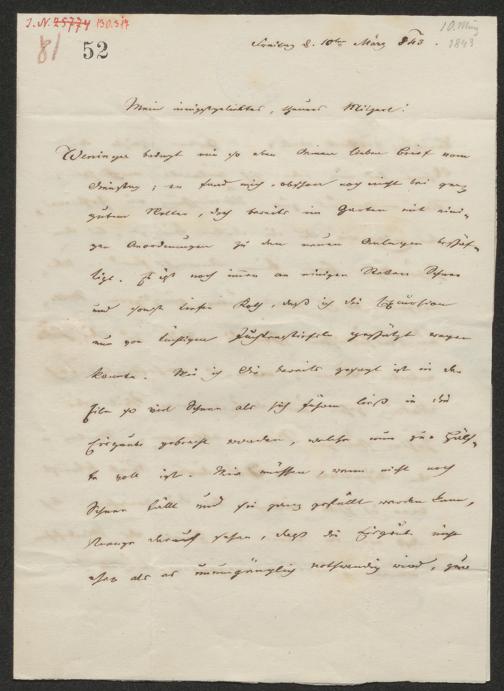 I.N. 25774 130.517
81
52
10. März
1843
Freitag d. 10ten März 843.
Mein innigstgeliebter, theurer Mitzerl!
bringt mir so eben deinen lieben Brief vom
Dienstag; er fand mich, obschon noch nicht bei ganz
gutem Wetter, doch bereits im Garten mit eini-
gen Anordnungen zu den neuen Anlagen beschäf-
tigt. Es ist noch immer an einigen Stellen Schnee
und sonst tiefer Koth, daß ich die Excursion
nur gestützt wagen
konnte. Wie ich dir bereits gesagt ist in der
Eile so viel Schnee als sich führen ließ in die
Eisgrube gebracht worden, welche nun zur Hälf-
te voll ist. Wir müssen, wenn nicht noch
Schnee fällt und sie ganz gefüllt werden kann,
strenge darauf sehen, daß die Eisgrube nicht
eher als es unumgänglich nothwendig wird, zum